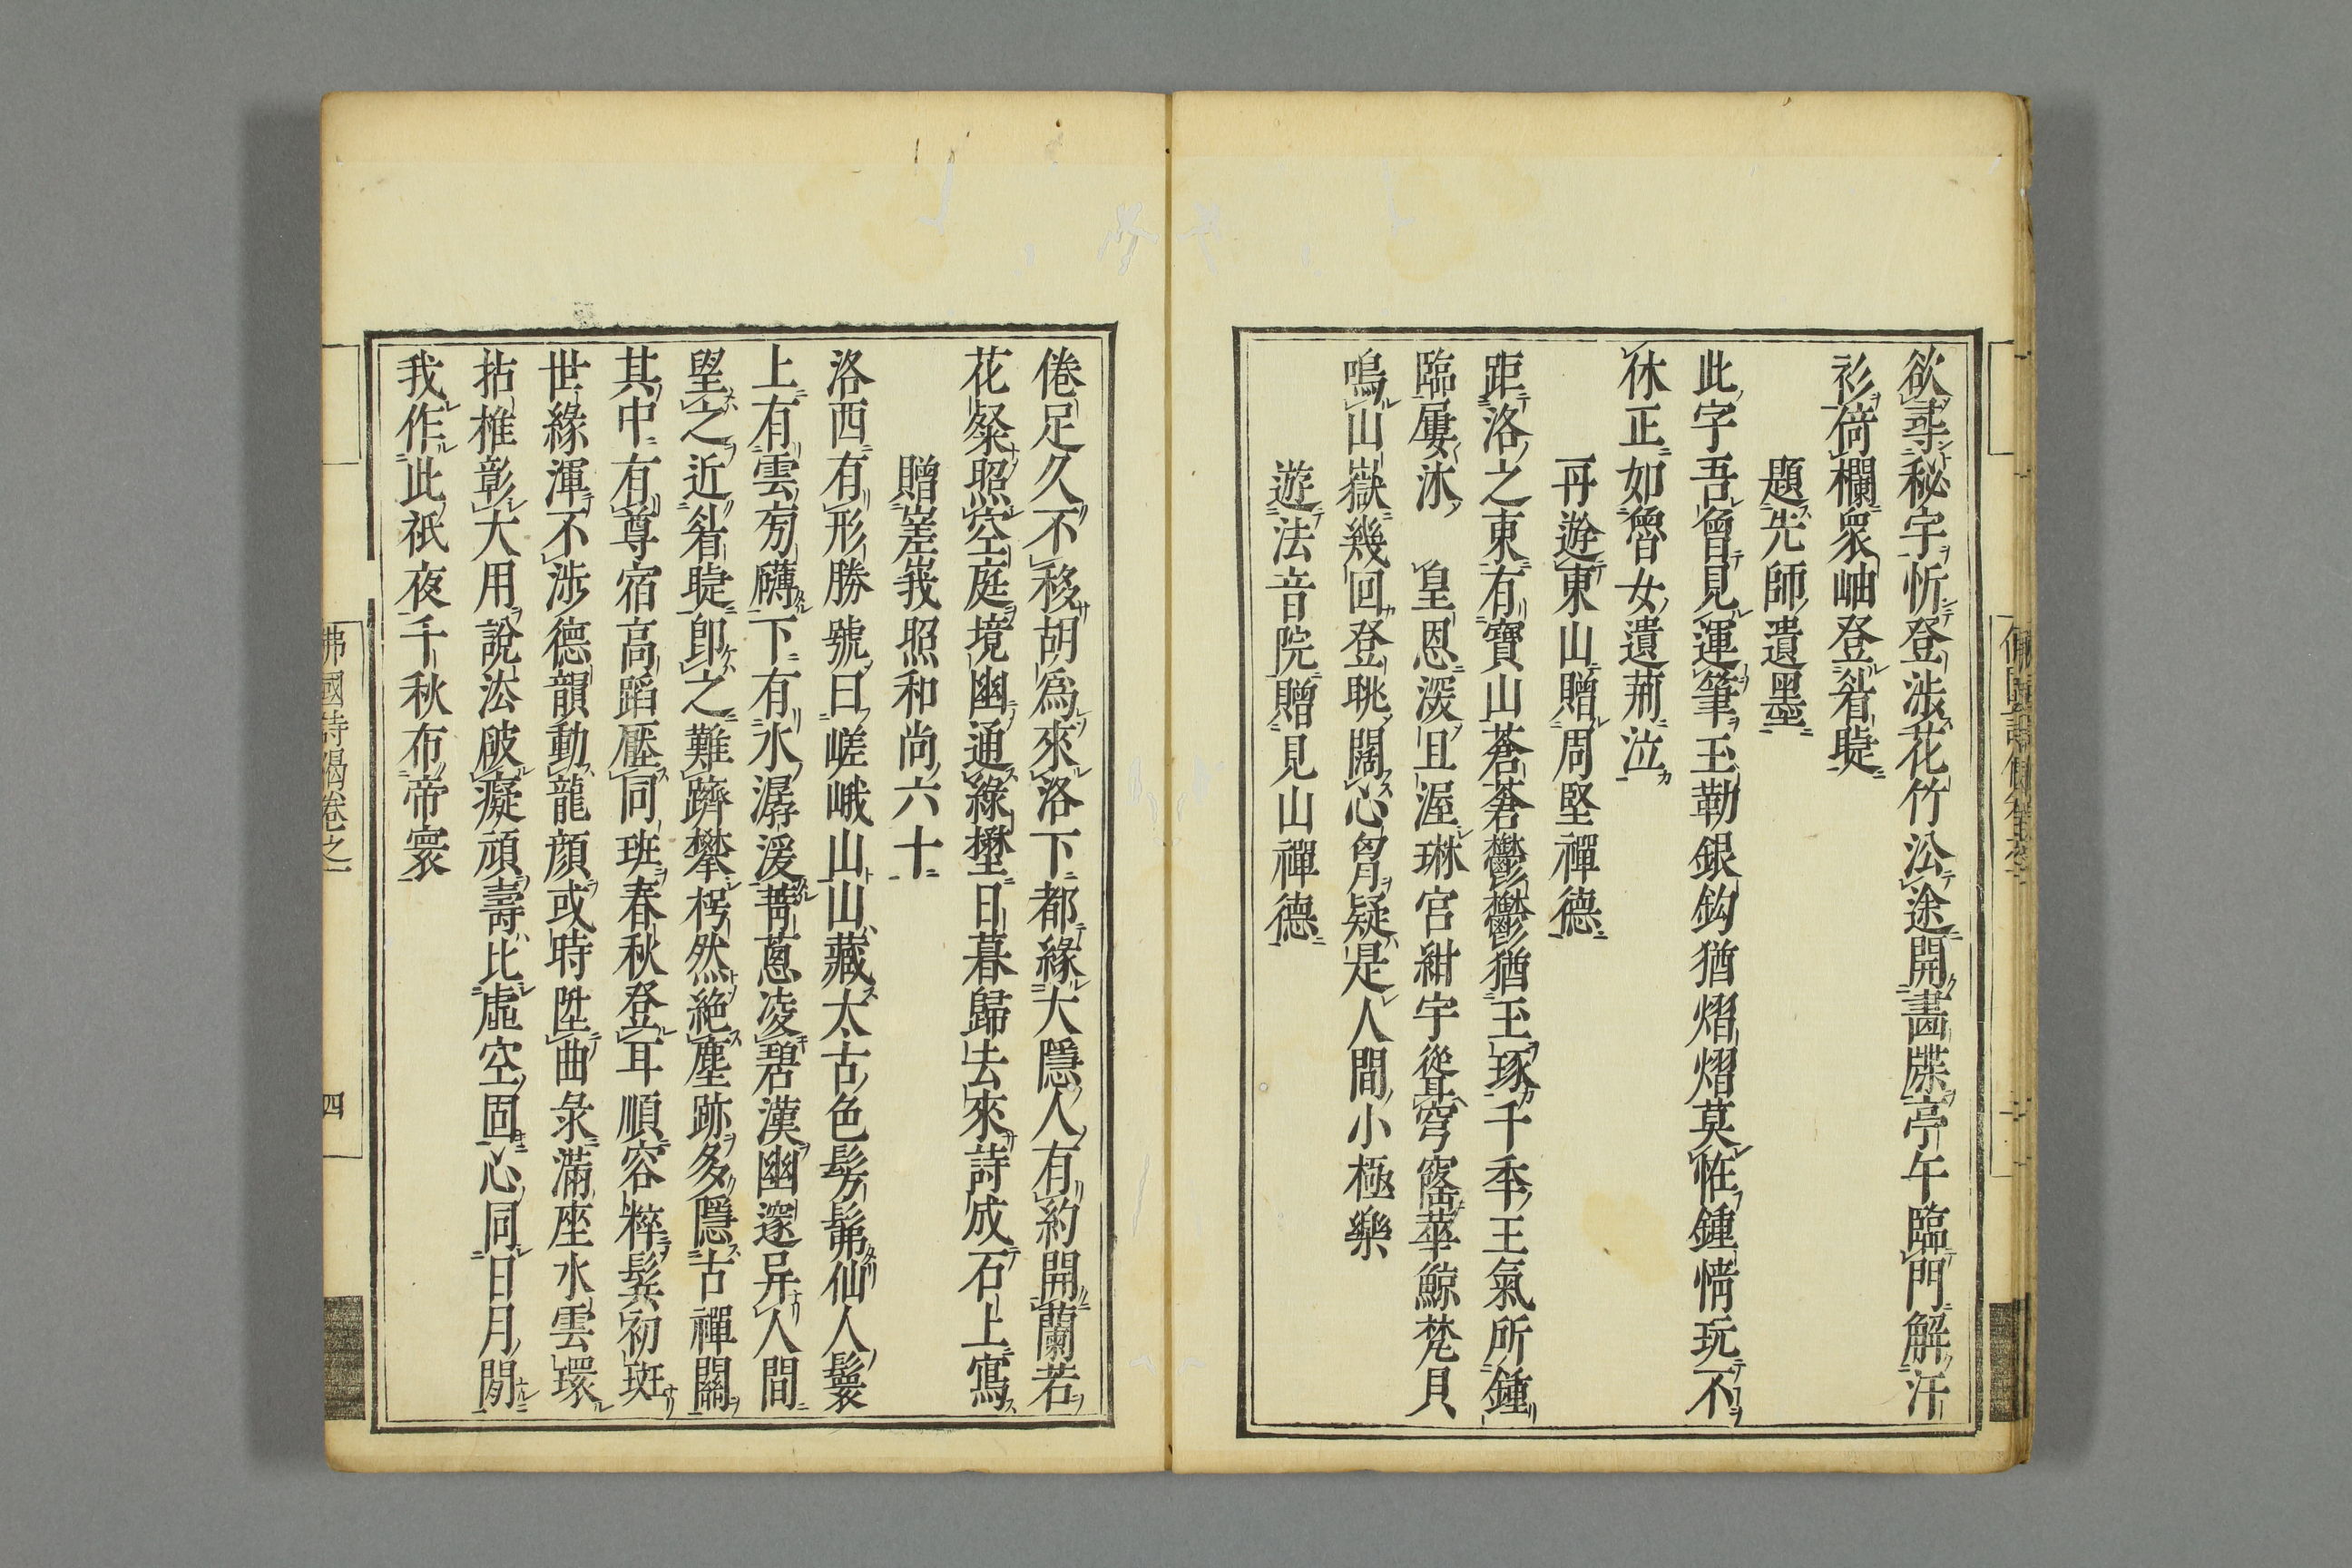 欲尋秘宇忻登渉花竹㳂途開畫牒亭午臨門解汗
衫倚欄衆岫登眥睫
題先師遺墨
此字吾曾見運筆玉勒銀鈎猶熠熠莫恠鍾情玩不
休正如魯女遺荊泣
再遊東山贈周堅禪德
距洛之東有寶山蒼蒼鬱鬱猶玉琢千秊王氣所鍾
臨屢沐 皇恩深且渥琳宮紺宇從甚穹窿華鯨梵貝
鳴山嶽幾回登眺闊心胷疑是人間小極樂
遊法音院贈見山禪德
倦足久不移胡爲來洛下都緣大隱人有約開蘭若
花粲照空庭境幽通綠墅日暮歸去來詩成石上寫
贈嵳峩照和尚六十
洛西有形勝號曰嵯峨山山藏太古色髣髴仙人鬟
上有雲旁礴下有水潺湲菁蔥凌碧漢幽邃异人間
望之近眥睫即之難躋攀枵然絶塵跡多隱古禪關
其中有尊宿高蹈壓同班春秋登耳順容粹鬂初斑
世緣渾不渉德韻動龍顔或時陞曲彔滿座水雲環
拈椎彰大用說㳒破癡頑壽比虛空固心同日月閒
我作此祇夜千秋布帝寰
佛國詩偈卷之一
四